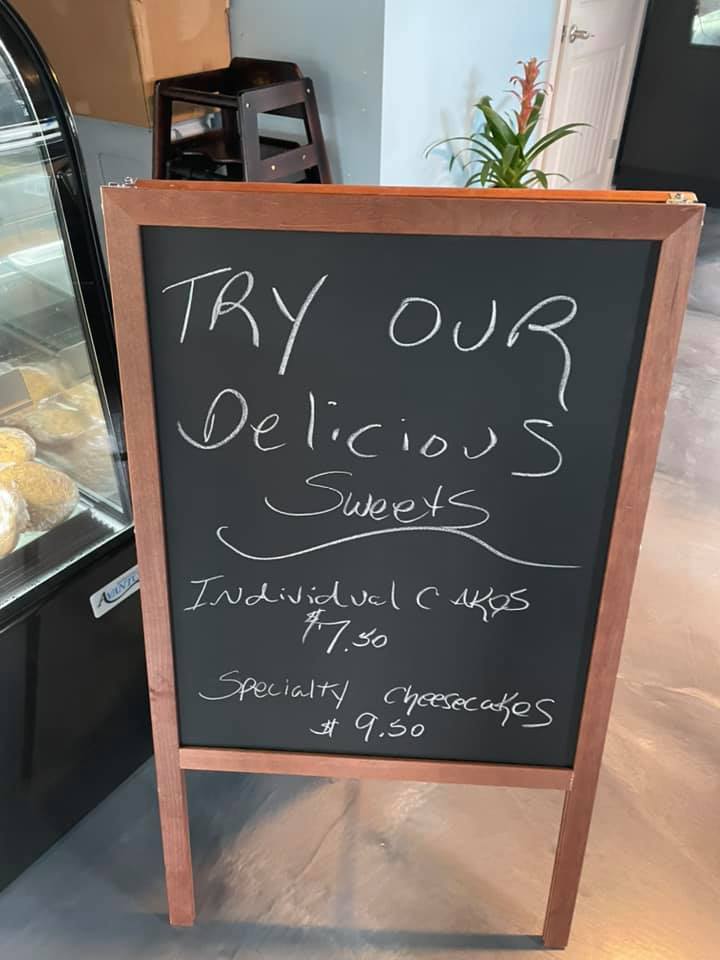 TRY OUR
Delicious
Sweets
Individual Cakes
$7.50
Specialty cheesecakes
$9.50
AVANTCO